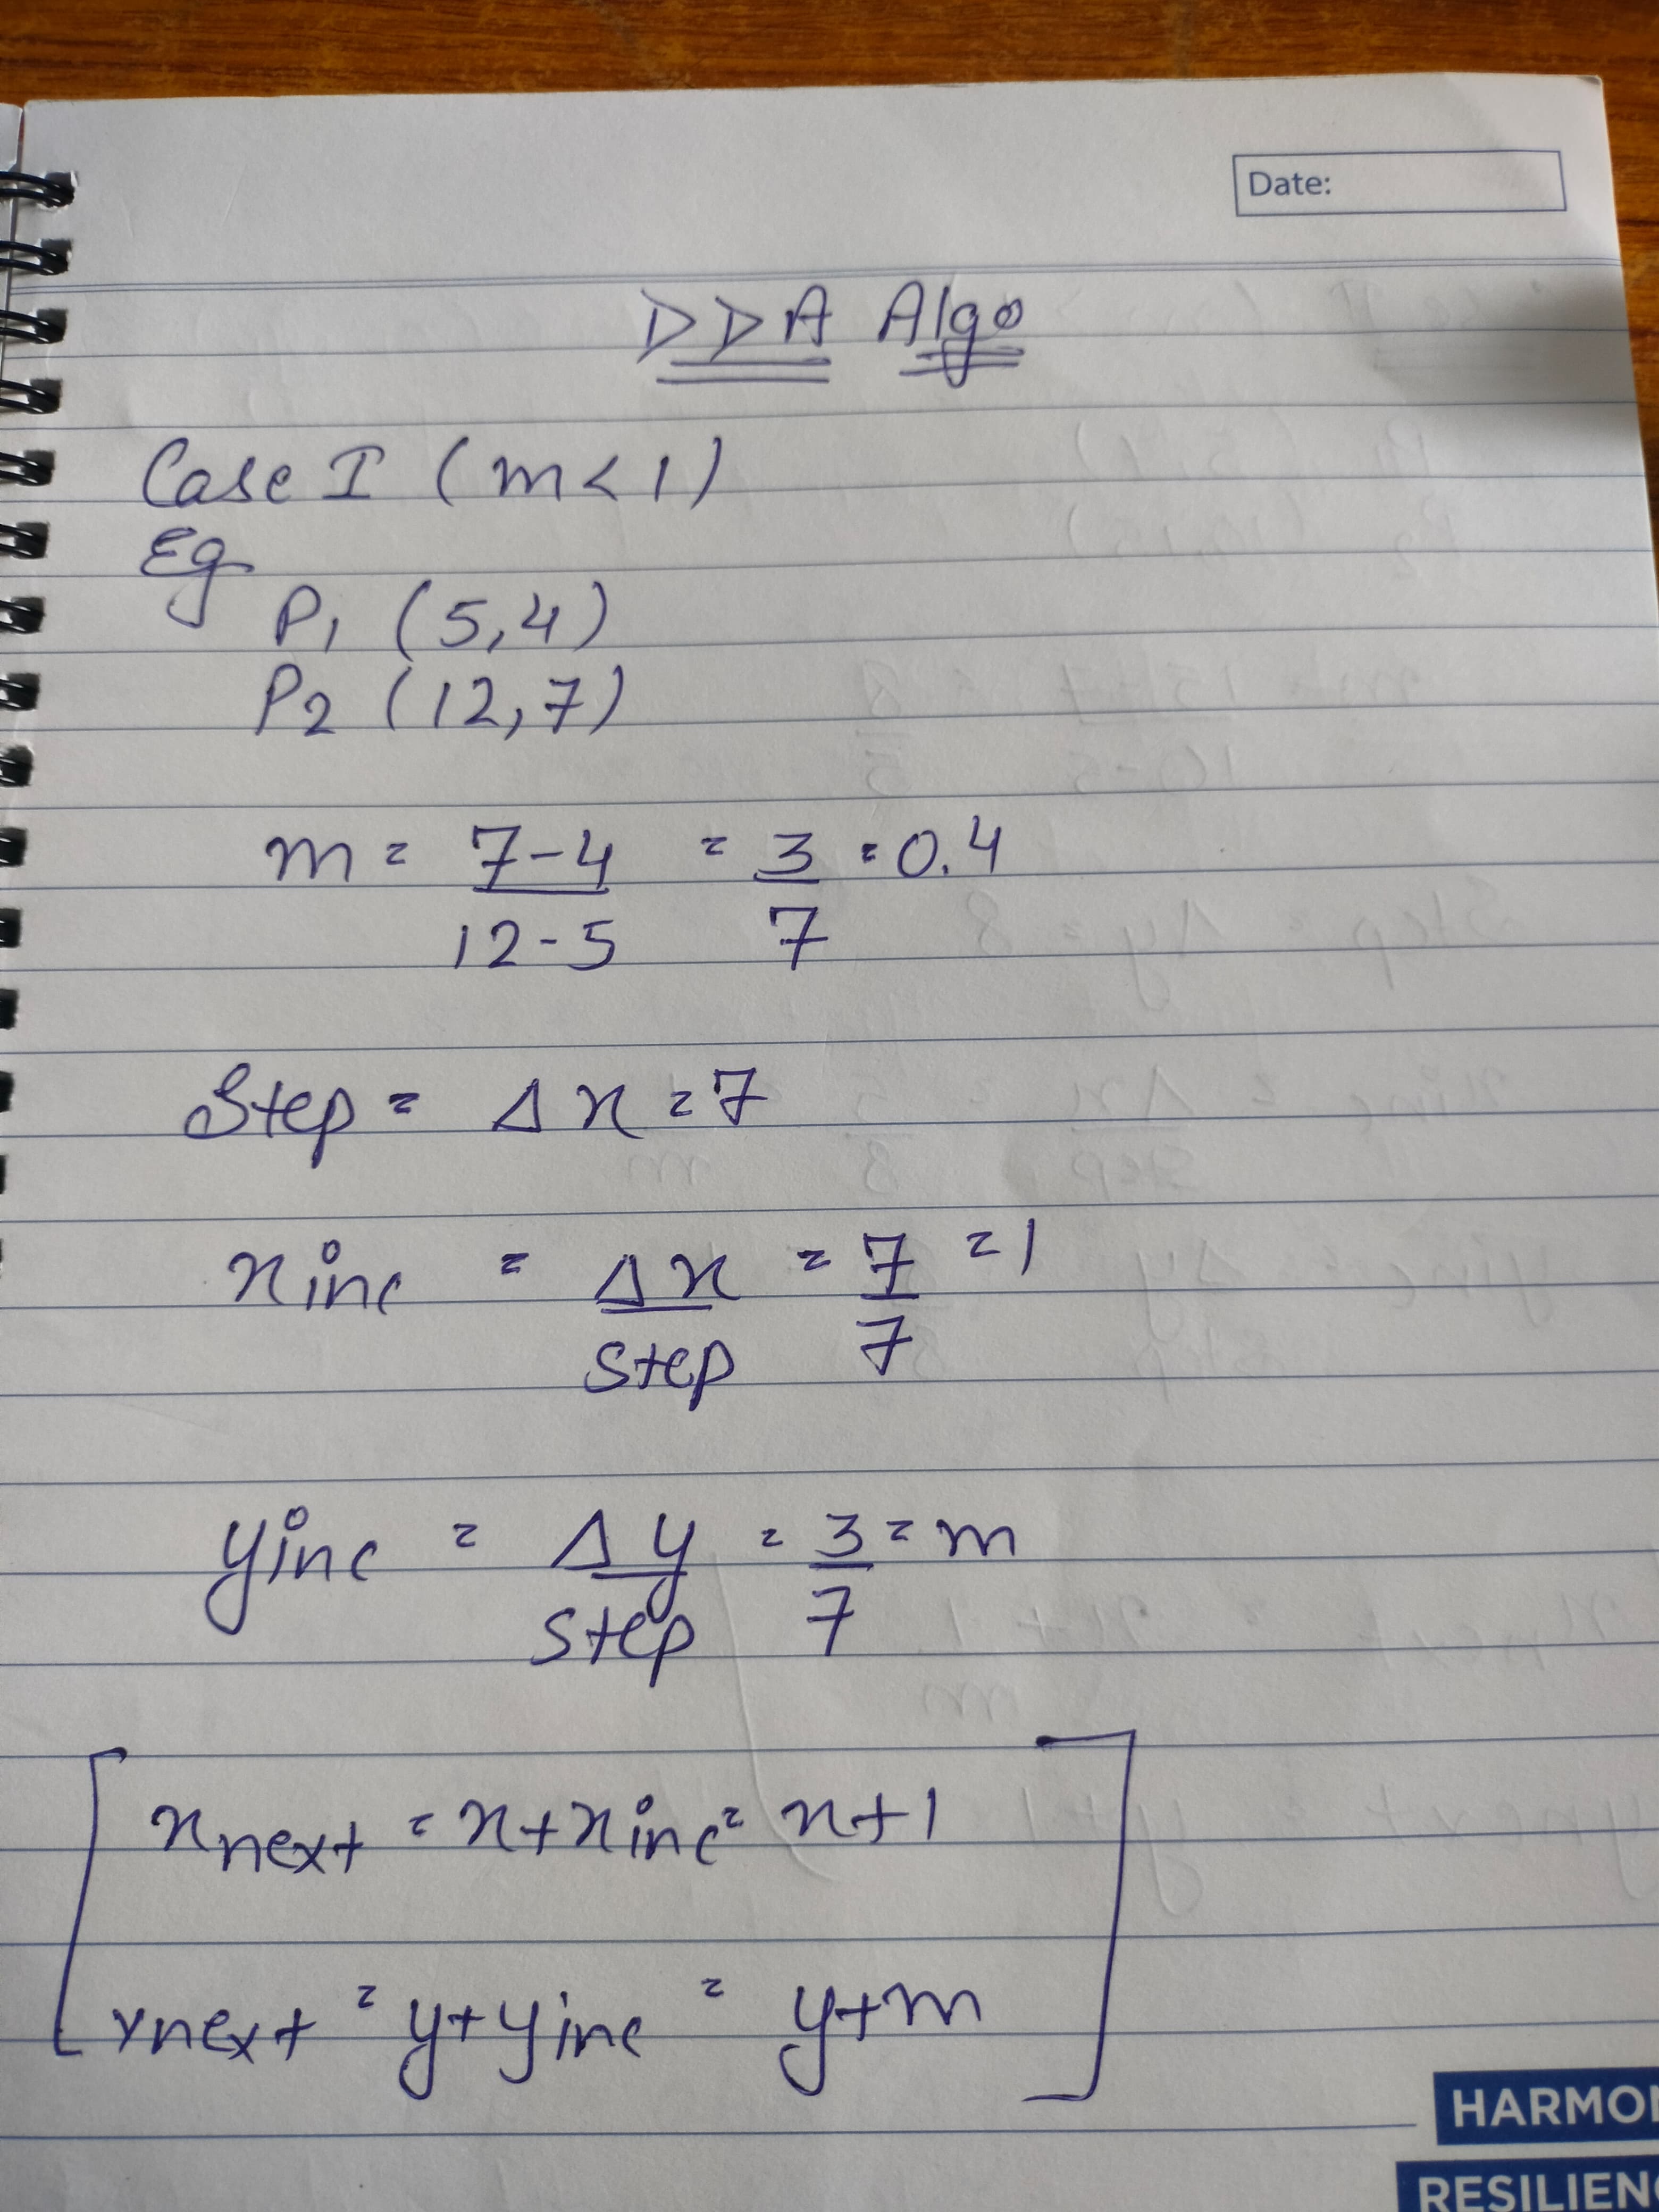 Date:
DDA Algo
Case I (m<1)
Eg
P1 (5,4)
P2 (12,7)
m = 7-4 = 3 = 0.4
12-5 7
Step = Δx = 7
xinc = Δx = 7 = 1
step 7
yinc = Δy = 3 = m
step 7
xnext = x+xinc = x+1
ynext = y+yinc = y+m
HARMO
RESILIEN